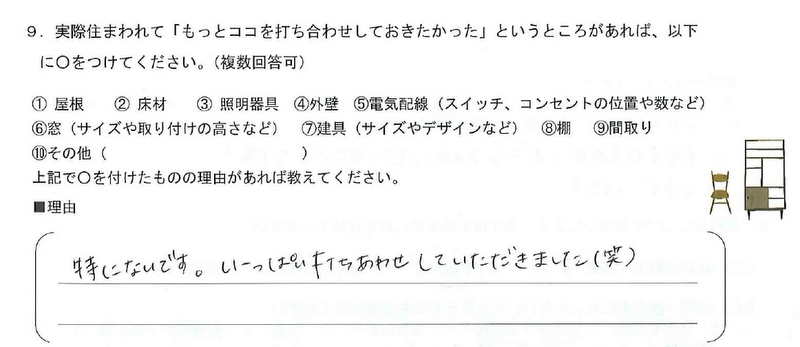 9．実際住まわれて「もっとココを打ち合わせしておきたかった」というところがあれば、以下
に〇をつけてください。（複数回答可）
① 屋根　② 床材　③ 照明器具　④外壁　⑤電気配線（スイッチ、コンセントの位置や数など）
⑥窓（サイズや取り付けの高さなど）　⑦建具（サイズやデザインなど）　⑧棚　⑨間取り
⑩その他（　　　　　　　　　　　　）
上記で〇を付けたものの理由があれば教えてください。
■理由
特にないです。いーっぱい打ちあわせしていただきました(笑)